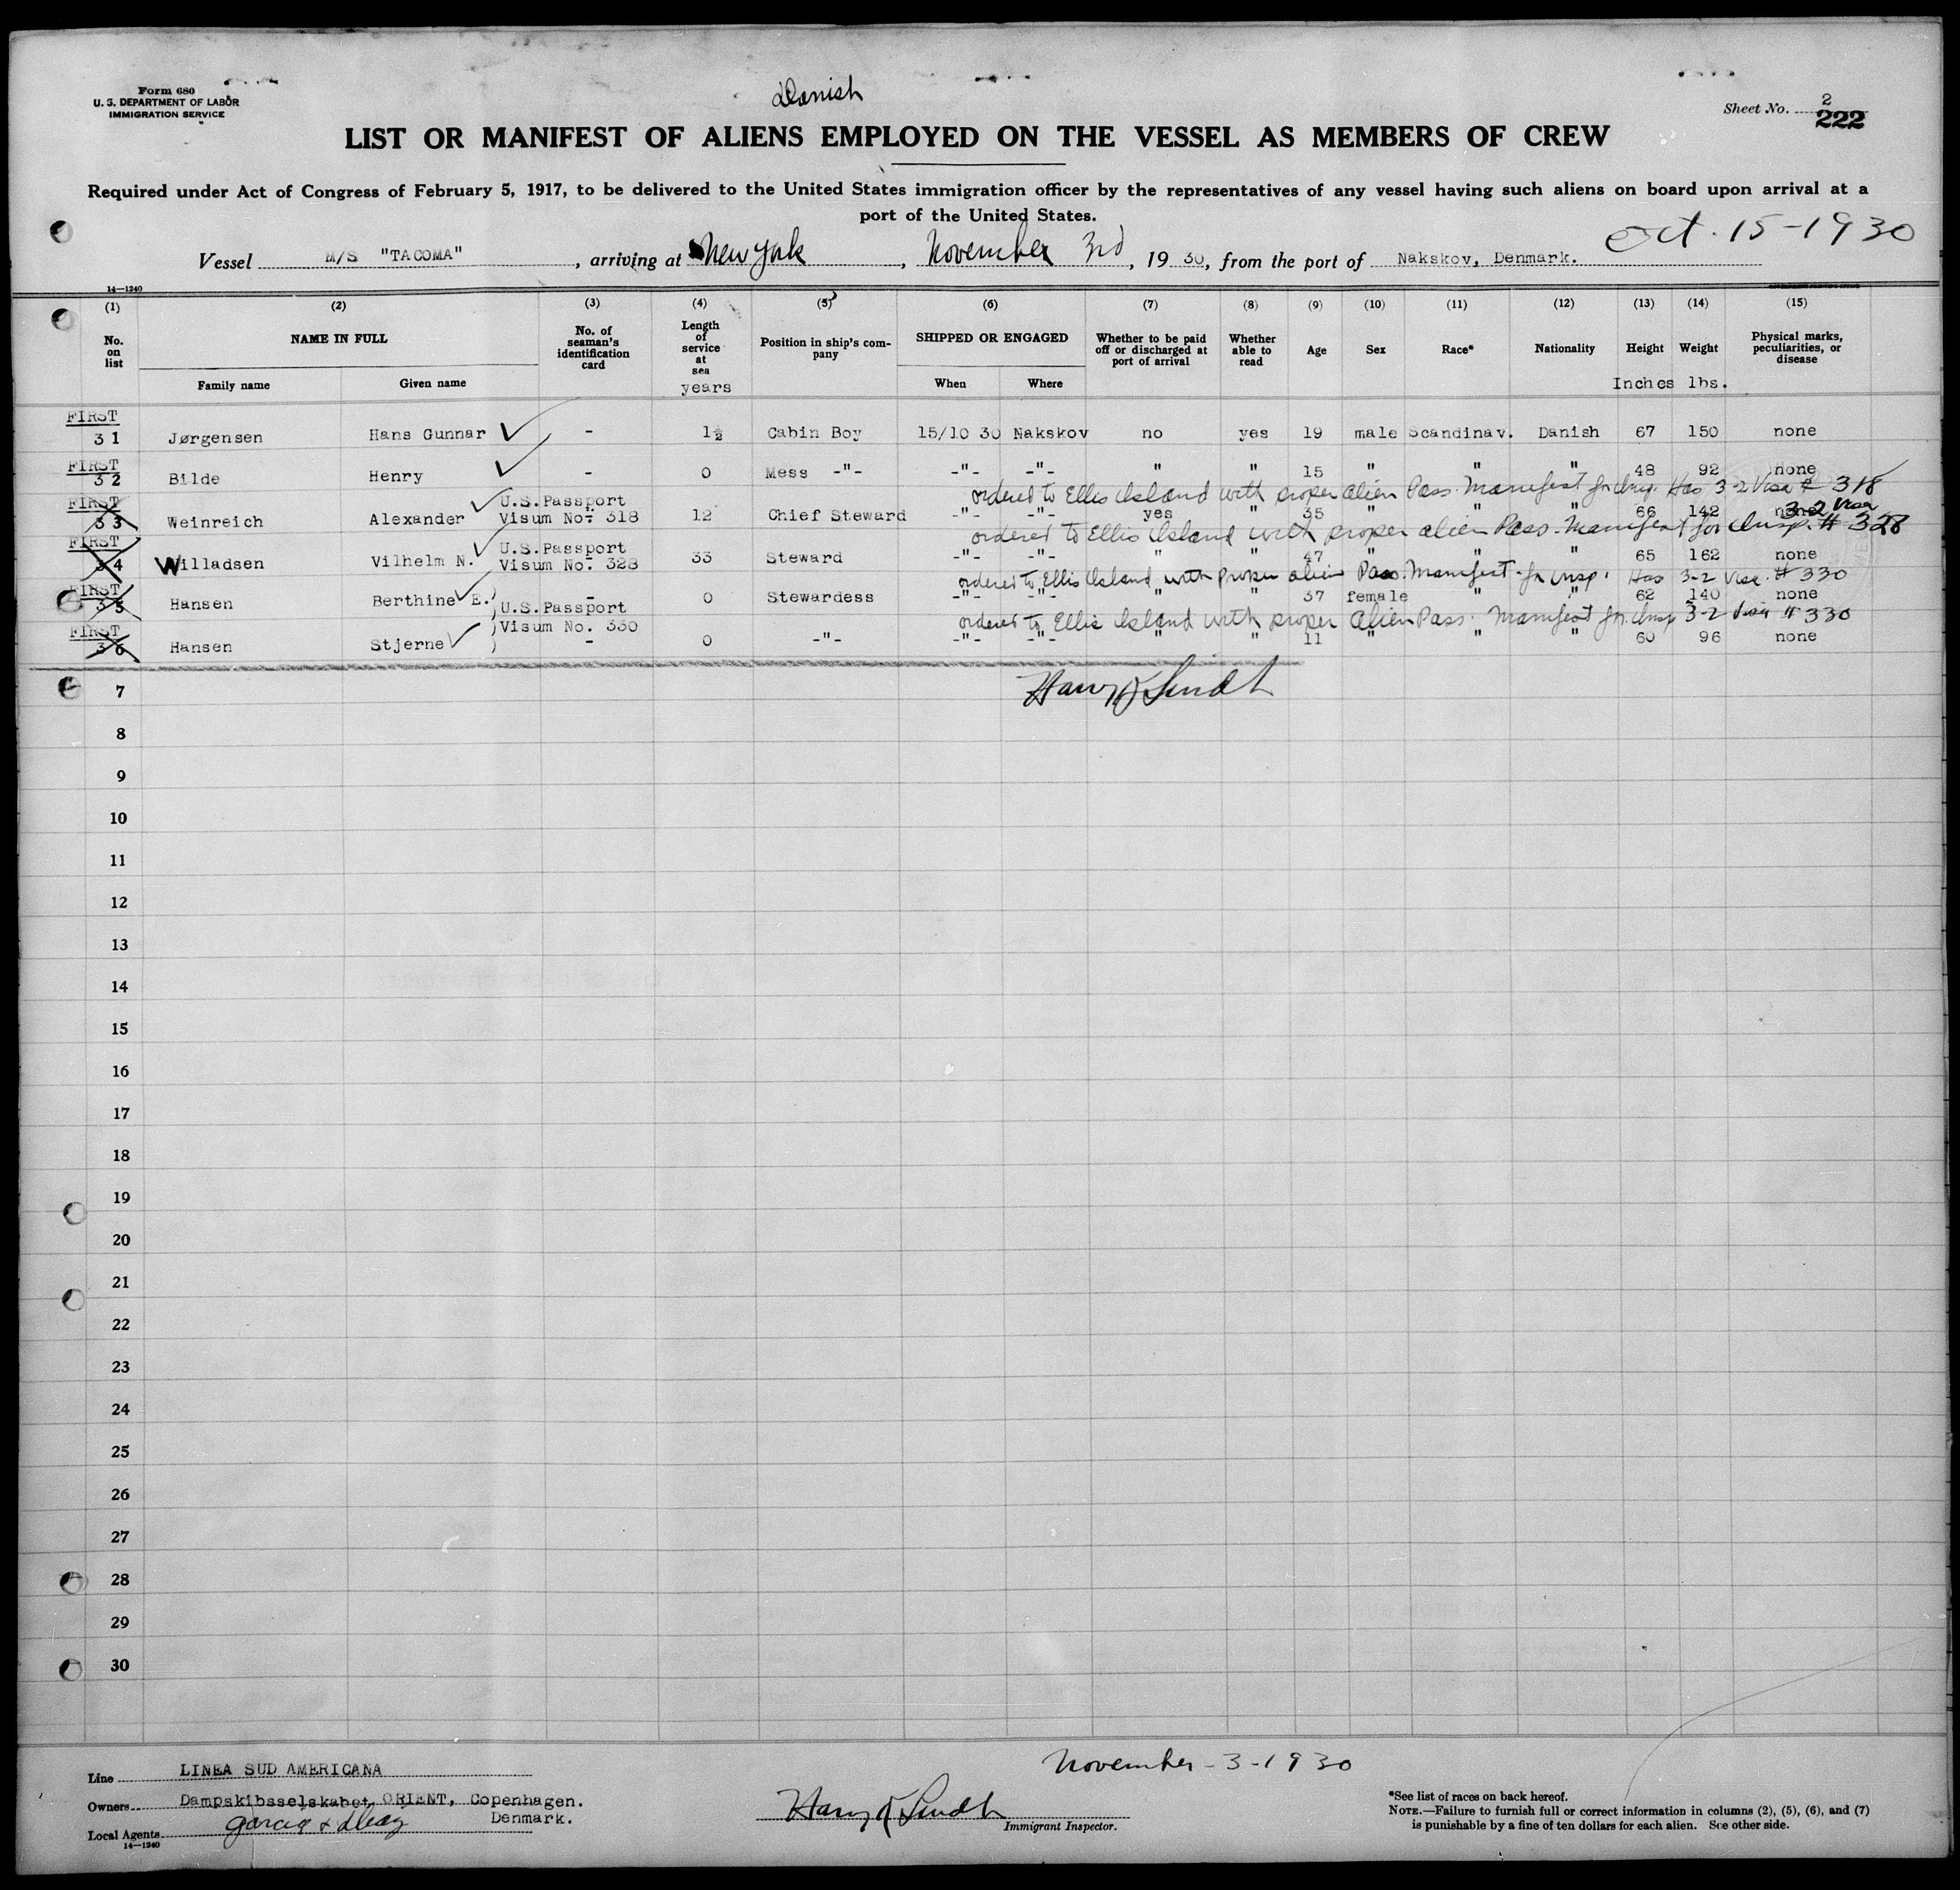 Form 680
U. S. DEPARTMENT OF LABOR
IMMIGRATION SERVICE
Danish
Sheet No. 2
222
LIST OR MANIFEST OF ALIENS EMPLOYED ON THE VESSEL AS MEMBERS OF CREW
Required under Act of Congress of February 5, 1917, to be delivered to the United States immigration officer by the representatives of any vessel having such aliens on board upon arrival at a
port of the United States.
Oct. 15-1930
Vessel M/S "TACOMA", arriving at New York, November 3rd, 19 30, from the port of Nakskov, Denmark.
14—1240
(1) (2) (3) (4) (5) (6) (7) (8) (9) (10) (11) (12) (13) (14) (15)
No. on list NAME IN FULL Family name Given name No. of seaman's identification card Length of service at sea years Position in ship's company SHIPPED OR ENGAGED When Where Whether to be paid off or discharged at port of arrival Whether able to read Age Sex Race* Nationality Height Inches Weight lbs. Physical marks, peculiarities, or disease
FIRST
31 Jørgensen Hans Gunnar - 1½ Cabin Boy 15/10 30 Nakskov no yes 19 male Scandinav. Danish 67 150 none
FIRST
32 Bilde Henry - 0 Mess -"- -"- -"- " " 15 " " " 48 92 none
ordered to Ellis Island with proper alien Pass. Manifest for Insp. Has 3-2 Visa # 318
FIRST U.S.Passport
33 Weinreich Alexander Visum No: 318 12 Chief Steward -"- -"- yes " 35 " " " 66 142 none
ordered to Ellis Island with proper alien Pass. Manifest for Insp. 3-2 Visa # 328
FIRST U.S.Passport
34 Willadsen Vilhelm N. Visum No: 328 33 Steward -"- -"- " " 47 " " " 65 162 none
ordered to Ellis Island with proper alien Pass. Manifest for Insp. Has 3-2 Visa # 330
FIRST
35 Hansen Berthine E. - 0 Stewardess -"- -"- " " 37 female " " 62 140 none
U.S.Passport
Visum No. 330
ordered to Ellis Island with proper Alien Pass. Manifest for Insp 3-2 Visa # 330
FIRST
36 Hansen Stjerne - 0 -"- -"- -"- " " 11 " " " 60 96 none
7
8
9
10
11
12
13
14
15
16
17
18
19
20
21
22
23
24
25
26
27
28
29
30
November-3-1930
Line LINEA SUD AMERICANA
Owners Dampskibsselskabet ORIENT, Copenhagen.
Denmark.
Local Agents Garcia & Diaz
14—1240
Immigrant Inspector.
*See list of races on back hereof.
NOTE.—Failure to furnish full or correct information in columns (2), (5), (6), and (7)
is punishable by a fine of ten dollars for each alien. See other side.